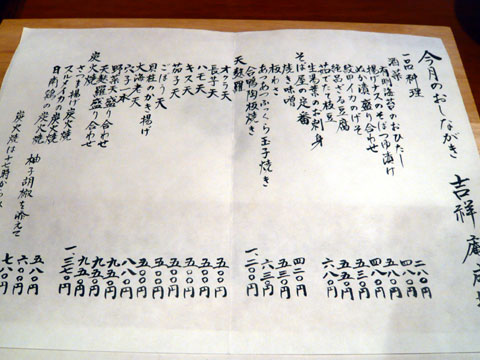 今月のおしながき 吉祥庵
一品料理
酒菜
有明海苔のおひたし 二八〇円
揚げナスのそばつゆ漬け 四八〇円
ぬか漬盛り合わせ 五八〇円
紋甲イカのげそ 四八〇円
絶品ざる豆腐 五五〇円
茹でたて枝豆 六八〇円
生湯葉のお刺身
そば屋の定番
焼き味噌 四二〇円
板わさ 五三〇円
あつあつふっくら玉子焼き 六三〇円
合鴨陶板焼き 一、二〇〇円
天麩羅
オクラ天 五〇〇円
長芋天 五〇〇円
ハモ天
キス天 五〇〇円
茄子天 五〇〇円
ごぼう天 五〇〇円
貝柱のかき揚げ
大海老天
穴子一本 八八〇円
野菜天盛り合わせ 九五〇円
天麩羅盛り合わせ 一、三七〇円
炭火焼
さつま揚げ炭火焼 五八〇円
スルメイカの炭火焼 六〇〇円
日南鶏の炭火焼 柚子胡椒を添えて 七八〇円
炭火焼は十七時から